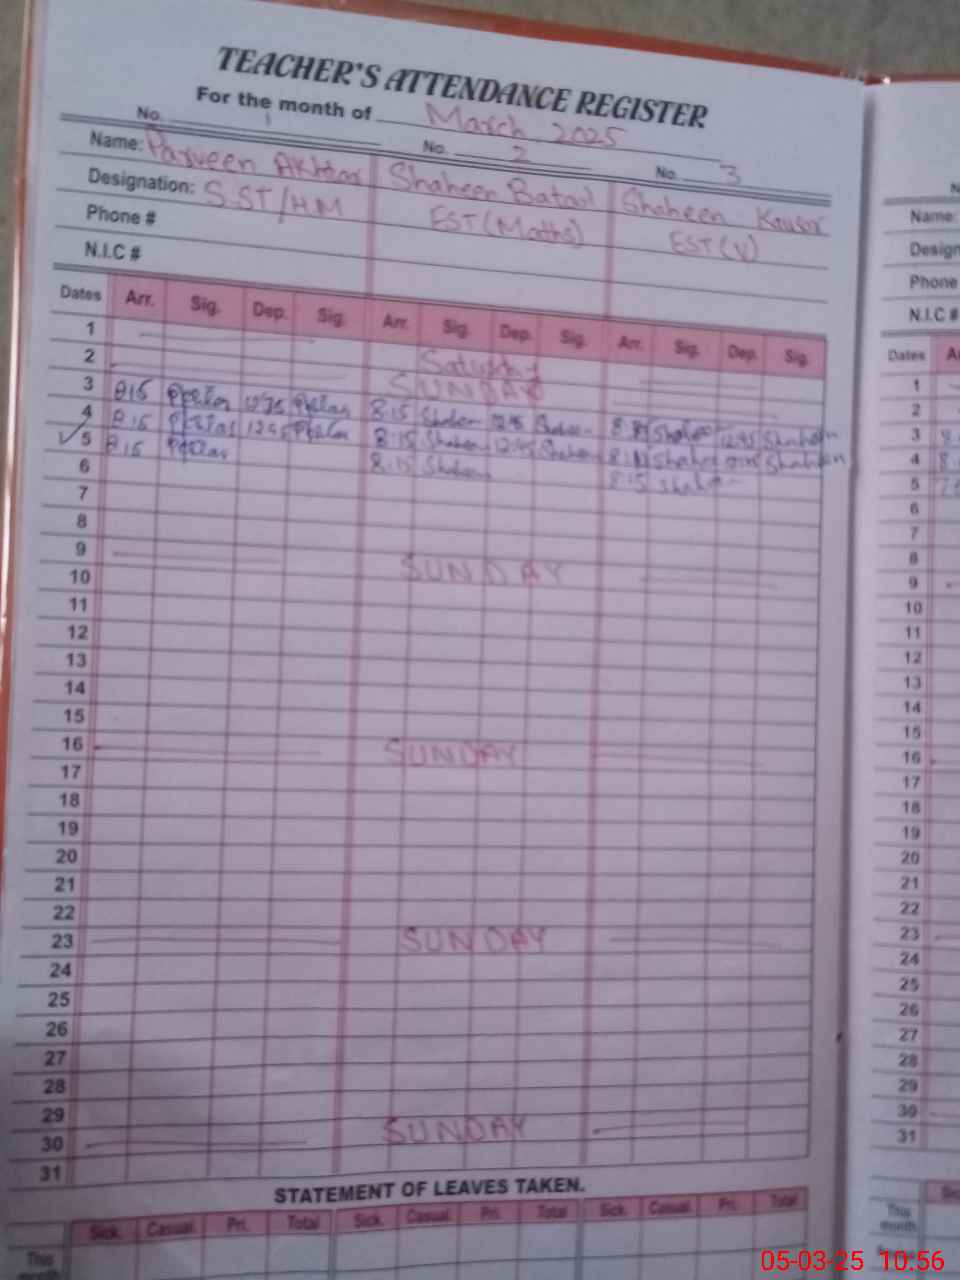 TEACHER'S ATTENDANCE REGISTER
For the month of March 2025
No. 1 No. 2 No. 3
Name: Parveen Akhtar Shaheen Batool Shaheen Kausar
Designation: S.ST/H.M EST(Maths) EST(V)
Phone #
N.I.C #
Dates Arr. Sig. Dep. Sig. Arr. Sig. Dep. Sig. Arr. Sig. Dep. Sig.
1 Saturday
2 SUNDAY
3 8:15 8:15 Shaheen 12:45 Shaheen Shaheen 12:45 Shaheen
4 8:15 1245 8:15 Shaheen 12:45 Shaheen Shaheen Shaheen
✓5 8:15 8:15 Shaheen 8:15 Shaheen
6
7
8
9 SUNDAY
10
11
12
13
14
15
16 SUNDAY
17
18
19
20
21
22
23 SUNDAY
24
25
26
27
28
29
30 SUNDAY
31
STATEMENT OF LEAVES TAKEN.
Sick. Casual. Pri. Total Sick. Casual. Pri. Total Sick. Casual. Pri. Total
This
month
N
Name:
Design
Phone
N.I.C #
Dates A
1
2
3 8
4 8
5
6
7
8
9
10
11
12
13
14
15
16
17
18
19
20
21
22
23
24
25
26
27
28
29
30
31
Sic
This
month
05-03-25 10:56